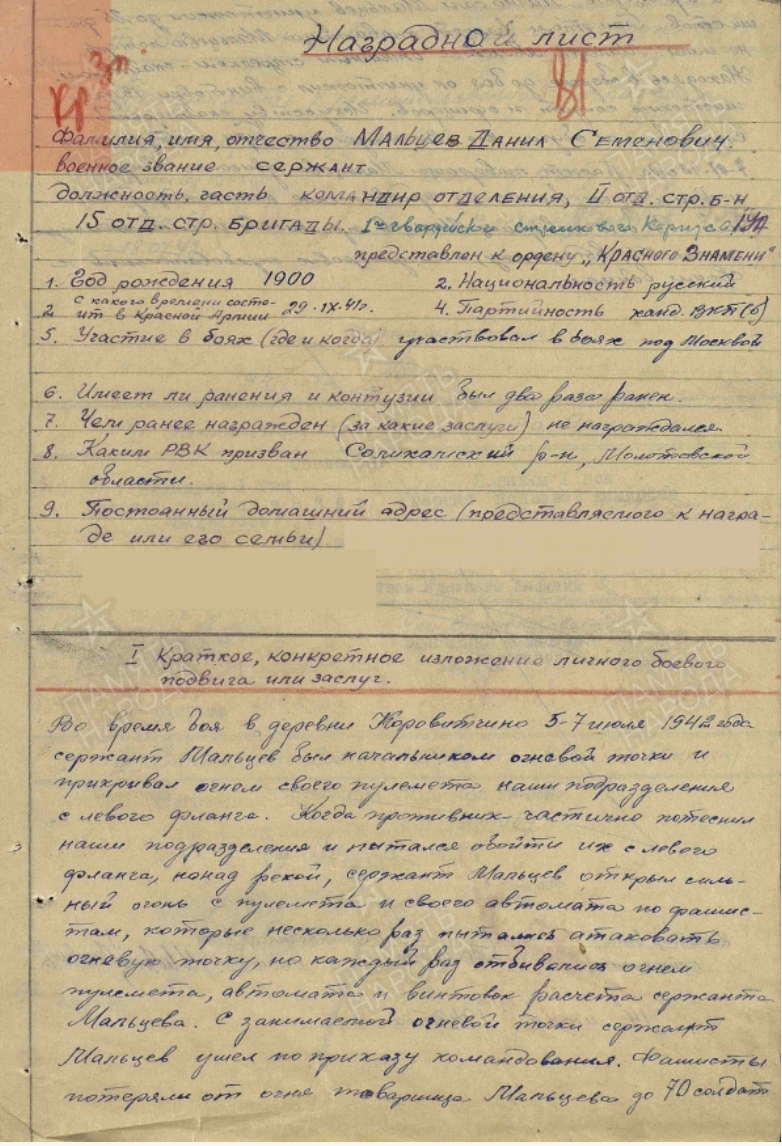 Наградной лист
81
Фамилия, имя, отчество Мальцев Данил Семенович.
военное звание сержант
должность, часть командир отделения, II отд. стр. б-н
15 отд. стр. бригады. 1го гвардейского стрелкового Корпуса
представлен к ордену „Красного Знамени"
1. Год рождения 1900 2. Национальность русский
2. с какого времени состо-
ит в Красной Армии 29.IX.41г. 4. Партийность канд. ВКП(б)
5. Участие в боях (где и когда) участвовал в боях под Москвой
6. Имеет ли ранения и контузии был два раза ранен.
7. Чем ранее награжден (за какие заслуги) не награждался.
8. Каким РВК призван Соликамский р-н, Молотовской
области.
9. Постоянный домашний адрес (представляемого к награ-
де или его семьи)
I Краткое, конкретное изложение личного боевого
подвига или заслуг.
Во время боя в деревни Коровитчино 5-7 июля 1942 года
сержант Мальцев был начальником огневой точки и
прикривал огнем своего пулемета наши подразделения
с левого фланга. Когда противник частично потеснил
наши подразделения и пытался обойти их с левого
фланга, понад рекой, сержант Мальцев открыл силь-
ный огонь с пулемета и своего автомата по фашис-
там, которые несколько раз пытались атаковать
огневую точку, но каждый раз отбивались огнем
пулемета, автомата и винтовок расчета сержанта
Мальцева. С занимаемой огневой точки сержант
Мальцев ушел по приказу командования. Фашисты
потеряли от огня товарища Мальцева до 70 солдат
ПАМЯТЬ НАРОДА